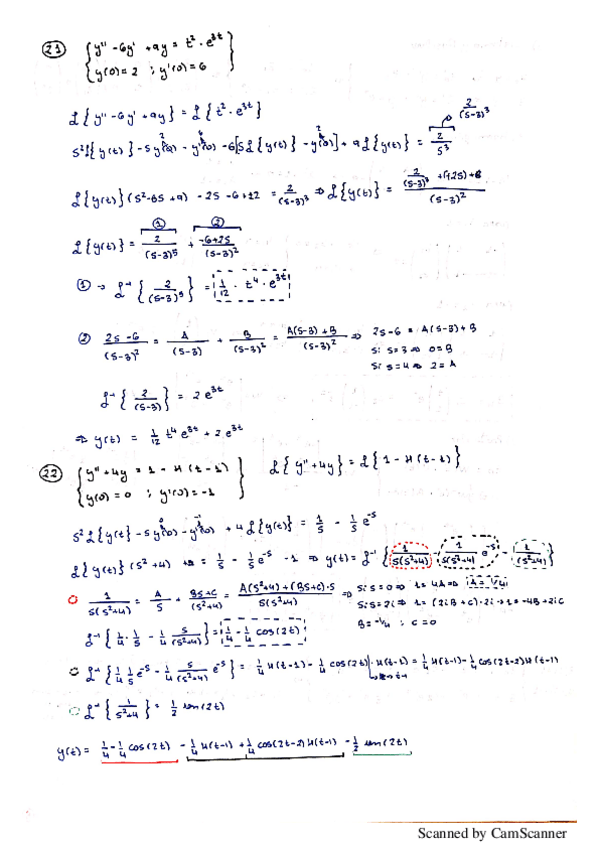 21) { y'' - 6y' + 9y = t² · e^{3t}
y(0) = 2 ; y'(0) = 6 }
ℒ{y'' - 6y' + 9y} = ℒ{t² · e^{3t}}
2/(s-3)³
s²ℒ{y(t)} - s y(0) - y'(0) - 6[sℒ{y(t)} - y(0)] + 9ℒ{y(t)} = 2/s³
ℒ{y(t)}(s² - 6s + 9) - 2s - 6 + 12 = 2/(s-3)³ ⇒ ℒ{y(t)} =
(s-3)²
① ②
ℒ{y(t)} = 2/(s-3)⁵ + (-6+2s)/(s-3)²
① → ℒ⁻¹{2/(s-3)⁵} = 1/12 · t⁴ · e^{3t}
② (2s-6)/(s-3)² = A/(s-3) + B/(s-3)² = (A(s-3)+B)/(s-3)² ⇒ 2s-6 = A(s-3)+B
si s=3 ⇒ 0=B
si s=4 ⇒ 2=A
ℒ⁻¹{2/(s-3)} = 2e^{3t}
⇒ y(t) = 1/12 t⁴ e^{3t} + 2e^{3t}
22) { y'' + 4y = 1 - H(t-1) ℒ{y'' + 4y} = ℒ{1 - H(t-1)}
y(0) = 0 ; y'(0) = -1 }
s²ℒ{y(t)} - s y(0) - y'(0) + 4ℒ{y(t)} = 1/s - 1/s e^{-s}
ℒ{y(t)}(s²+4) = 1/s - 1/s e^{-s} - 1 ⇒ y(t) = ℒ⁻¹{1/(s(s²+4)) - 1/(s(s²+4)) e^{-s} - 1/(s²+4)}
1/(s(s²+4)) = A/s + (Bs+C)/(s²+4) = (A(s²+4)+(Bs+C)·s)/(s(s²+4)) ⇒ si s=0 ⇒ 1=4A ⇒ A=1/4
si s=2i ⇒ 1=(2iB+C)·2i → 1=-4B+2iC
B=-1/4 ; C=0
ℒ⁻¹{1/4 · 1/s - 1/4 s/(s²+4)} = 1/4 - 1/4 cos(2t)
ℒ⁻¹{1/4 1/s e^{-s} - 1/4 s/(s²+4) e^{-s}} = 1/4 H(t-1) - 1/4 cos(2t)| · H(t-1) = 1/4 H(t-1) - 1/4 cos(2t-2) H(t-1)
ℒ⁻¹{1/(s²+4)} = 1/2 sen(2t)
y(t) = 1/4 - 1/4 cos(2t) - 1/4 H(t-1) + 1/4 cos(2t-2) H(t-1) - 1/2 sen(2t)
Scanned by CamScanner